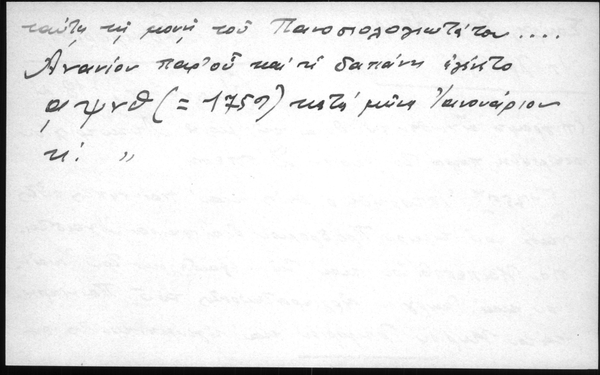 ταύτῃ τῇ μονῇ τοῦ Πανοσιολογιωτάτου ....
Ἀνανίου παρ' οὗ καὶ τῇ δαπάνῃ ἐγένετο
αψνθ (= 1759) κατὰ μῆνα Ἰαννουάριον
κ'. "